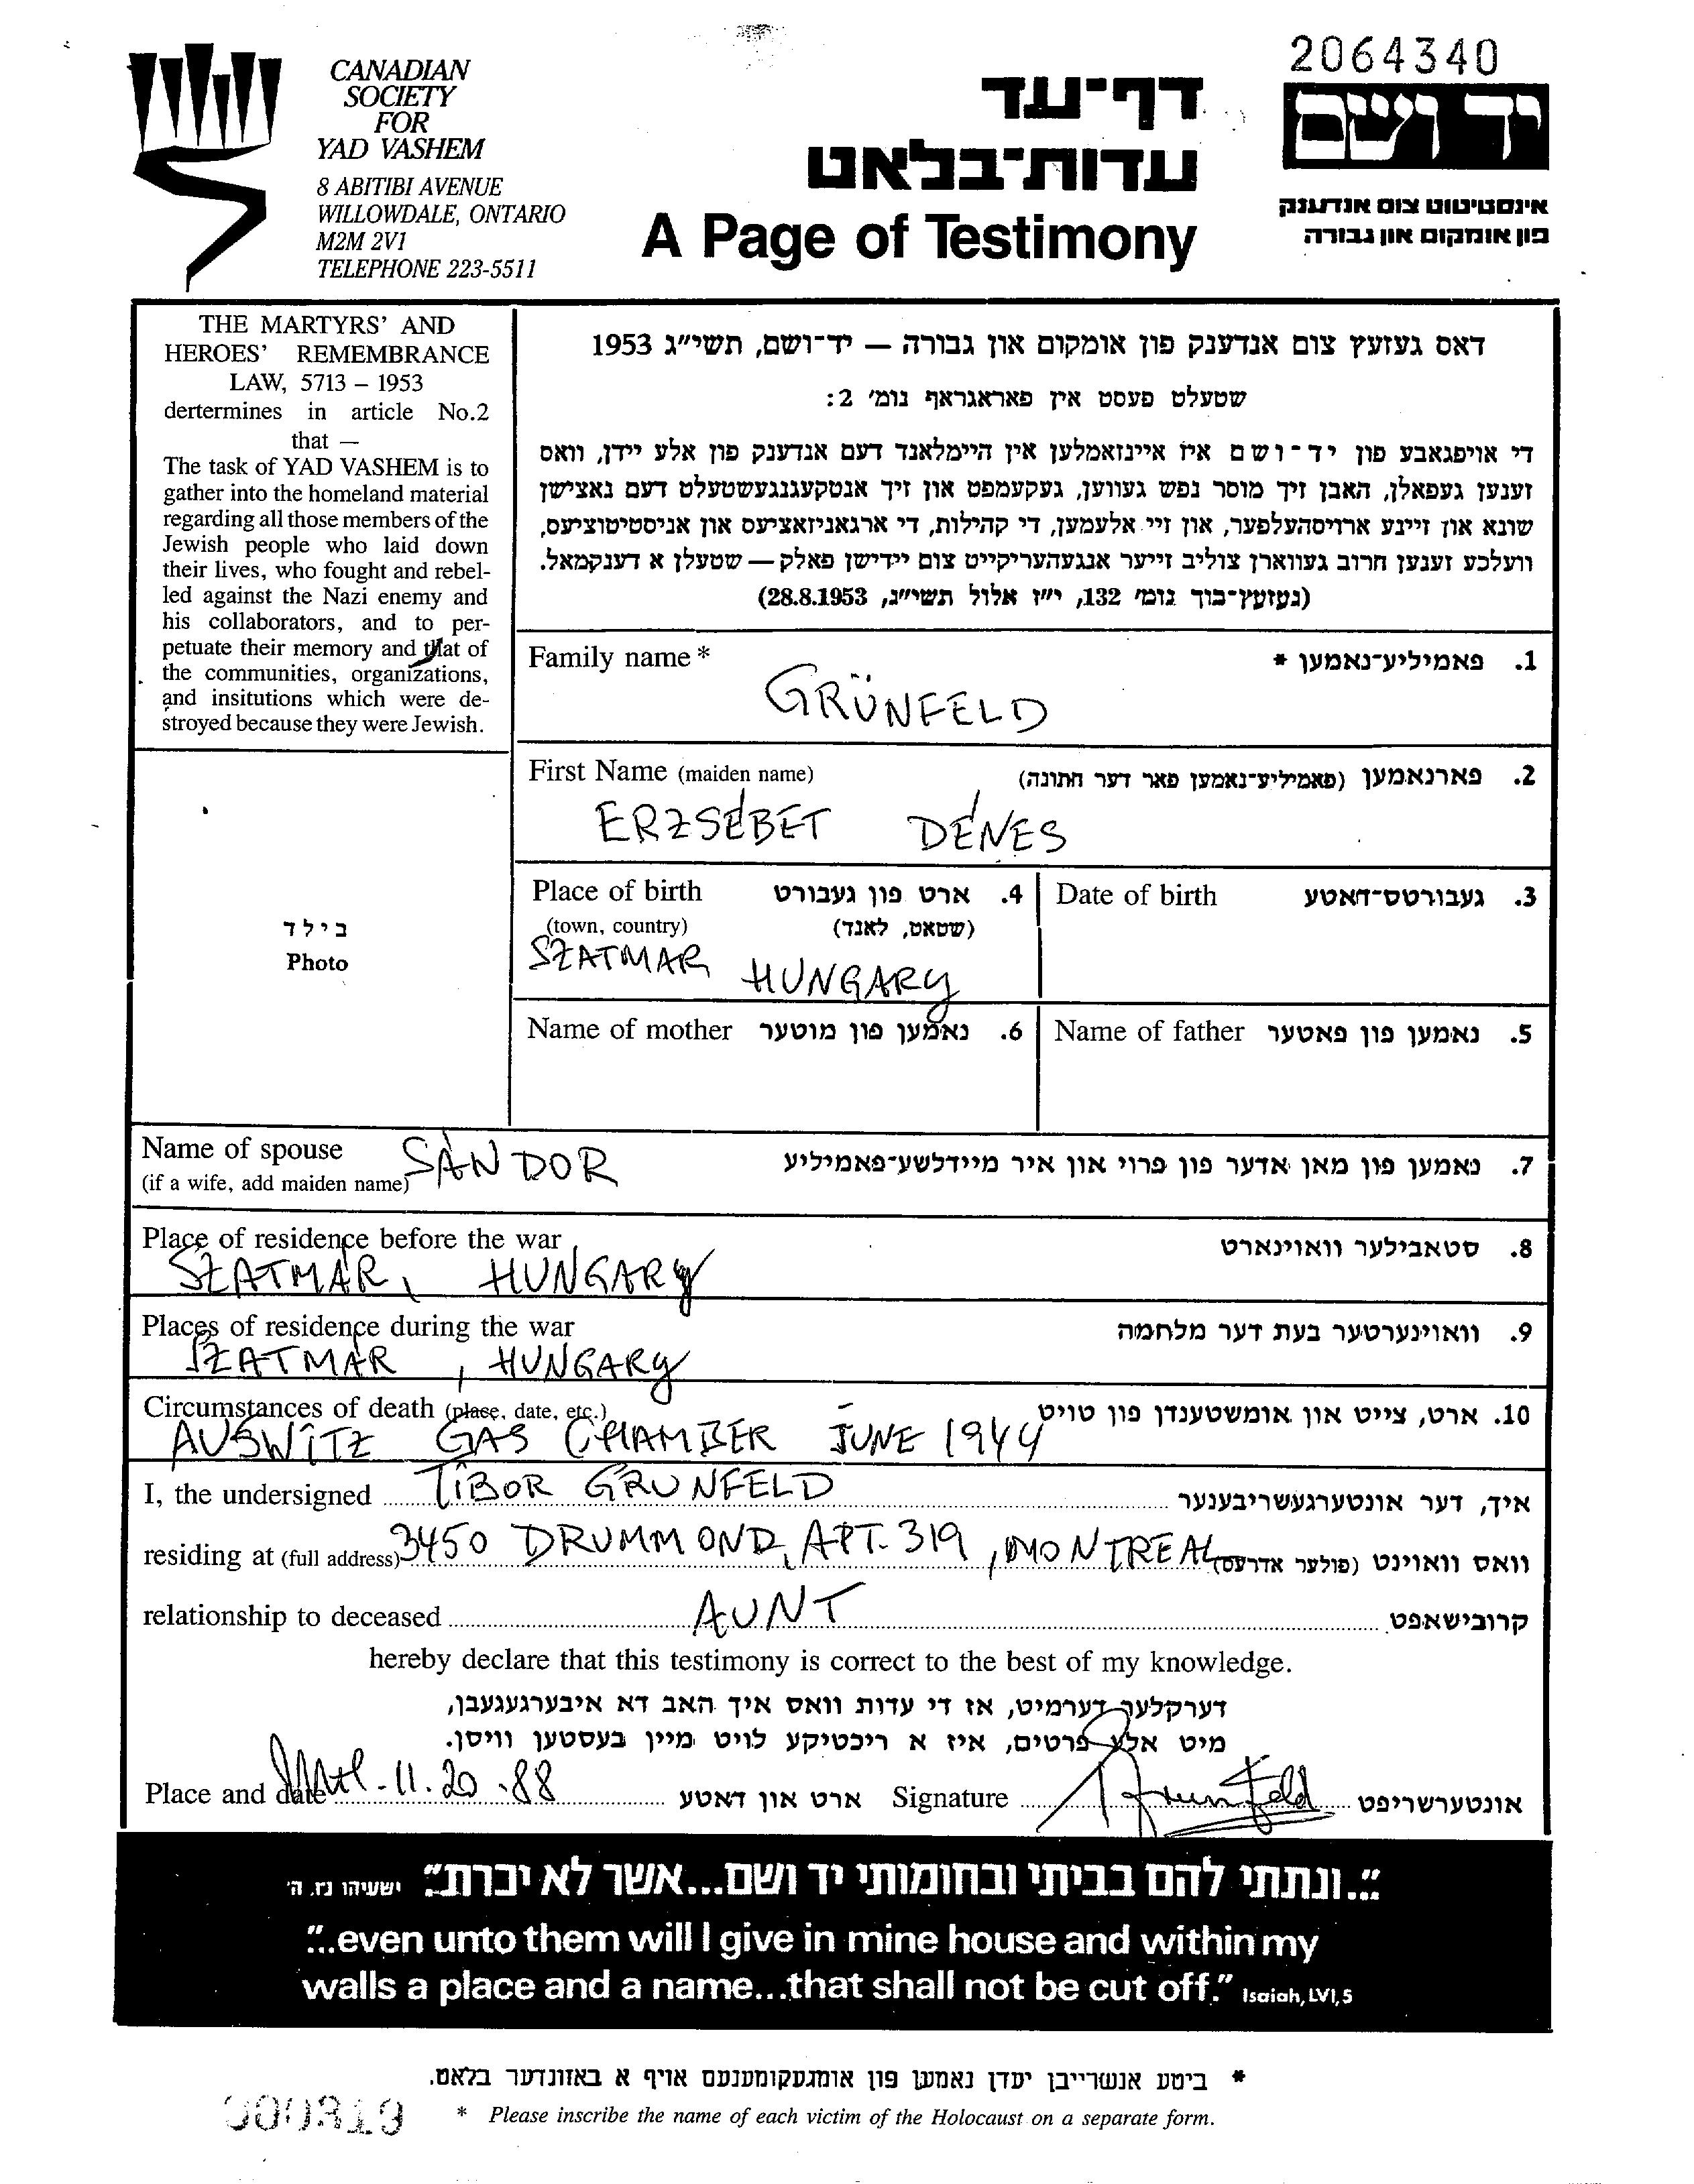 CANADIAN
SOCIETY
FOR
YAD VASHEM
8 ABITIBI AVENUE
WILLOWDALE, ONTARIO
M2M 2V1
TELEPHONE 223-5511
דף־עד
עדות־בלאט
A Page of Testimony
2064340
יד ושם
אינסטיטוט צום אנדענק
פון אומקום און גבורה
THE MARTYRS' AND
HEROES' REMEMBRANCE
LAW, 5713 – 1953
dertermines in article No.2
that —
The task of YAD VASHEM is to
gather into the homeland material
regarding all those members of the
Jewish people who laid down
their lives, who fought and rebel-
led against the Nazi enemy and
his collaborators, and to per-
petuate their memory and that of
the communities, organizations,
and insitutions which were de-
stroyed because they were Jewish.
דאס געזעץ צום אנדענק פון אומקום און גבורה — יד־ושם, תשי״ג 1953
שטעלט פעסט אין פאראגראף נומ׳ 2:
די אויפגאבע פון יד־ושם איז איינזאמלען אין היימלאנד דעם אנדענק פון אלע יידן, וואס
זענען געפאלן, האבן זיך מוסר נפש געווען, געקעמפט און זיך אנטקעגנגעשטעלט דעם נאצישן
שונא און זיינע ארויסהעלפער, און זיי אלעמען, די קהילות, די ארגאניזאציעס און אניסטיטוציעס,
וועלכע זענען חרוב געווארן צוליב זייער אנגעהעריקייט צום יידישן פאלק — שטעלן א דענקמאל.
(געזעץ־בוך נומ׳ 132, י״ז אלול תשי״ג, 28.8.1953)
Family name * פאמיליע־נאמען * .1
GRÜNFELD
First Name (maiden name) פארנאמען (פאמיליע־נאמען פאר דער חתונה) .2
ERZSÉBET DÉNES
Place of birth ארט פון געבורט .4
(town, country) (שטאט, לאנד)
SZATMAR HUNGARY
Date of birth געבורטס־דאטע .3
Name of mother נאמען פון מוטער .6
Name of father נאמען פון פאטער .5
בילד
Photo
Name of spouse SÁNDOR נאמען פון מאן אדער פון פרוי און איר מיידלשע־פאמיליע .7
(if a wife, add maiden name)
Place of residence before the war סטאבילער וואוינארט .8
SZATMÁR, HUNGARY
Places of residence during the war וואוינערטער בעת דער מלחמה .9
SZATMÁR, HUNGARY
Circumstances of death (place, date, etc.) ארט, צייט און אומשטענדן פון טויט .10
AUSWITZ GAS CHAMBER JUNE 1944
I, the undersigned TIBOR GRUNFELD איך, דער אונטערגעשריבענער
residing at (full address) 3450 DRUMMOND, APT. 319, MONTREAL וואס וואוינט (פולער אדרעס)
relationship to deceased AUNT קרובישאפט
hereby declare that this testimony is correct to the best of my knowledge.
דערקלער דערמיט, אז די עדות וואס איך האב דא איבערגעגעבן,
מיט אלע פרטים, איז א ריכטיקע לויט מיין בעסטען וויסן.
Place and date Mtl - 11. 20 - 88 ארט און דאטע Signature T Grunfeld אונטערשריפט
"...ונתתי להם בביתי ובחומותי יד ושם...אשר לא יכרת" ישעיהו נו, ה׳
"...even unto them will I give in mine house and within my
walls a place and a name...that shall not be cut off." Isaiah, LVI,5
* ביטע אנשרייבן יעדן נאמען פון אומגעקומענעם אויף א באזונדער בלאט.
* Please inscribe the name of each victim of the Holocaust on a separate form.